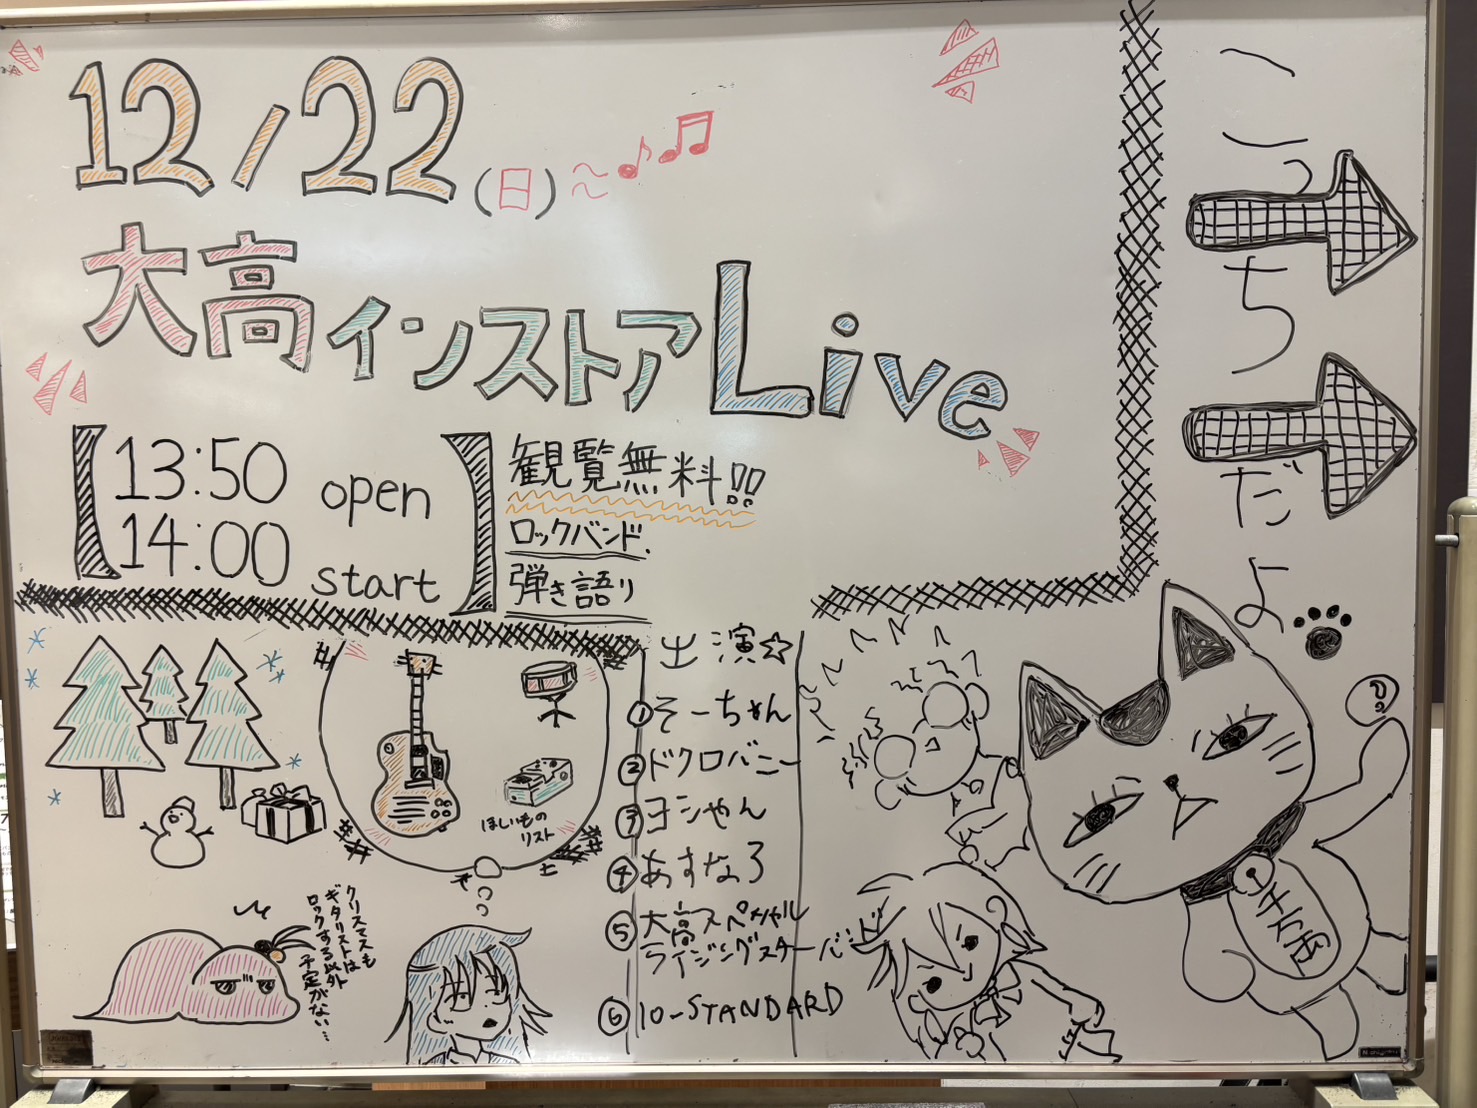 12/22(日)
大高インストアLive
13:50 open
14:00 start
観覧無料!!
ロックバンド、
弾き語り
こっちだよ
出演☆
①そーちゃん
②ドクロバニー
③ヨシやん
④あすなろ
⑤大高スペシャル
ライジングスターバンド
⑥10-STANDARD
ほしいもの
リスト
クリスマスも
ギタリストは
ロックする以外
予定がない…
千万両